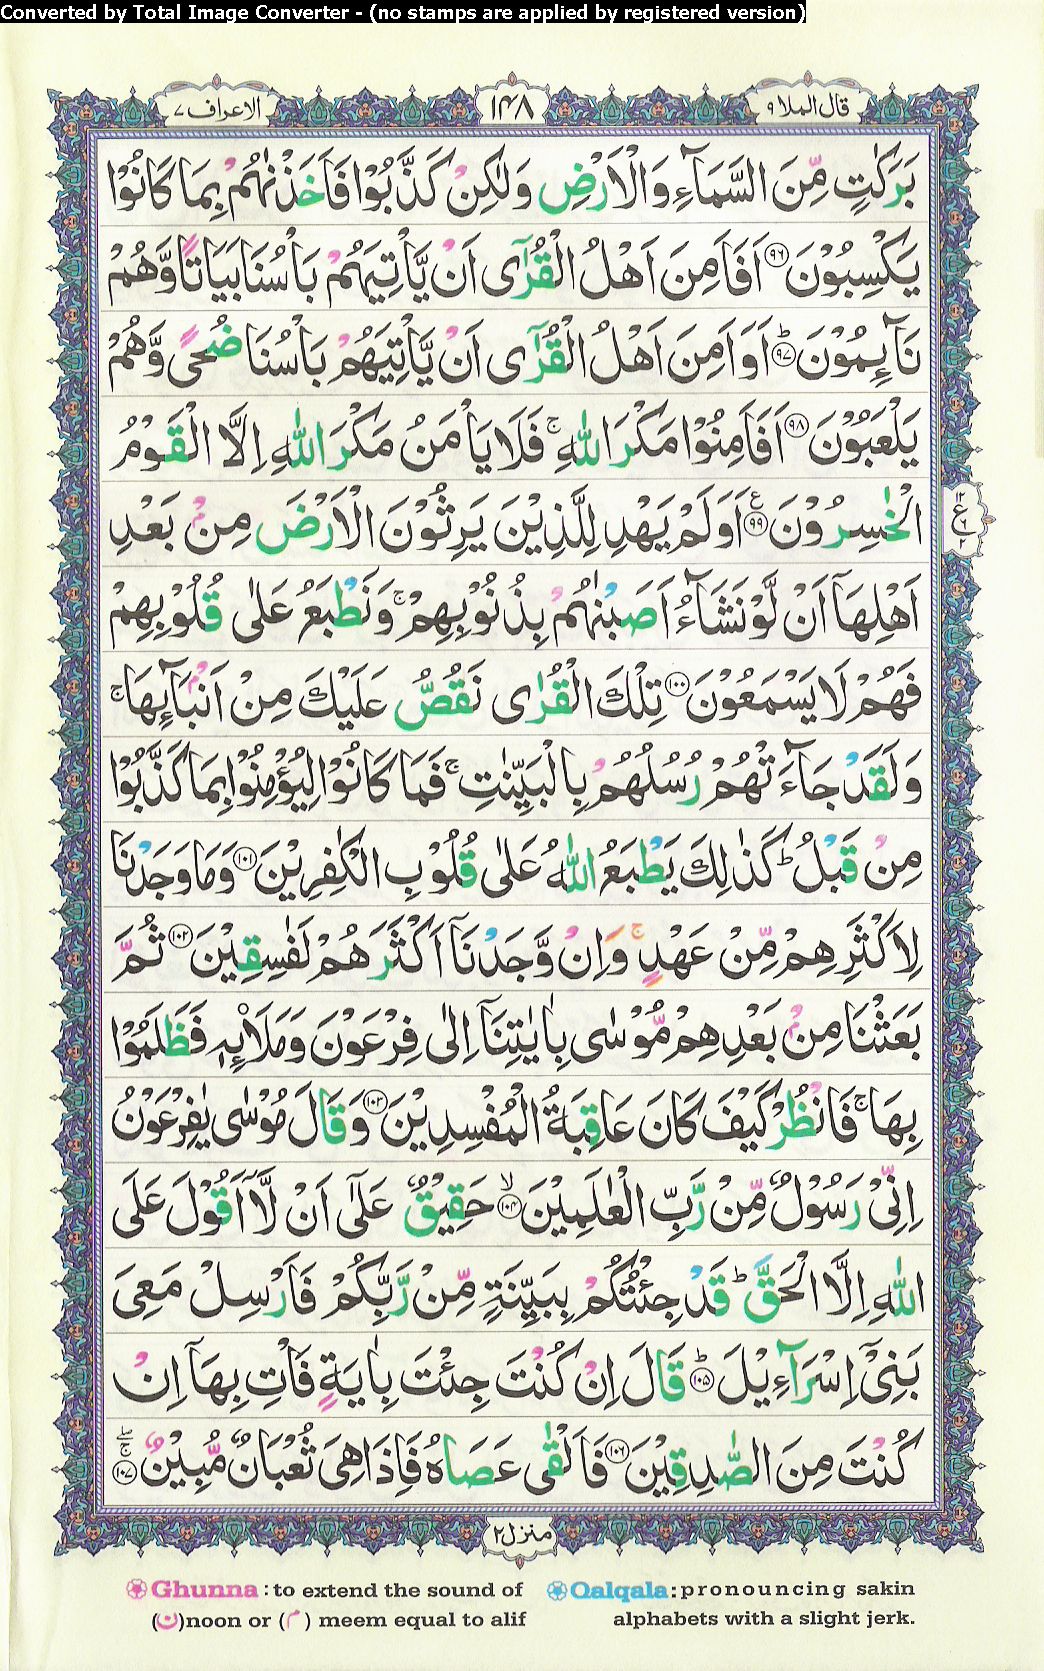 Converted by Total Image Converter - (no stamps are applied by registered version)
قال الملا ۹ ۱۴۸ الاعراف ۷
بَرَكٰتٍ مِّنَ السَّمَآءِ وَالْاَرْضِ وَلٰكِنْ كَذَّبُوْا فَاَخَذْنٰهُمْ بِمَا كَانُوْا
يَكْسِبُوْنَ ۹۶ اَفَاَمِنَ اَهْلُ الْقُرٰٓى اَنْ يَّاْتِيَهُمْ بَاْسُنَا بَيَاتًا وَّهُمْ
نَآئِمُوْنَ ؕ ۹۷ اَوَاَمِنَ اَهْلُ الْقُرٰٓى اَنْ يَّاْتِيَهُمْ بَاْسُنَا ضُحًى وَّهُمْ
يَلْعَبُوْنَ ۹۸ اَفَاَمِنُوْا مَكْرَ اللّٰهِ ۚ فَلَا يَاْمَنُ مَكْرَ اللّٰهِ اِلَّا الْقَوْمُ
الْخٰسِرُوْنَ ۹۹ اَوَلَمْ يَهْدِ لِلَّذِيْنَ يَرِثُوْنَ الْاَرْضَ مِنْۢ بَعْدِ
اَهْلِهَاۤ اَنْ لَّوْ نَشَآءُ اَصَبْنٰهُمْ بِذُنُوْبِهِمْ ۚ وَنَطْبَعُ عَلٰى قُلُوْبِهِمْ
فَهُمْ لَا يَسْمَعُوْنَ ۱۰۰ تِلْكَ الْقُرٰى نَقُصُّ عَلَيْكَ مِنْ اَنْۢبَآئِهَا ۚ
وَلَقَدْ جَآءَتْهُمْ رُسُلُهُمْ بِالْبَيِّنٰتِ ۚ فَمَا كَانُوْا لِيُؤْمِنُوْا بِمَا كَذَّبُوْا
مِنْ قَبْلُ ؕ كَذٰلِكَ يَطْبَعُ اللّٰهُ عَلٰى قُلُوْبِ الْكٰفِرِيْنَ ۱۰۱ وَمَا وَجَدْنَا
لِاَكْثَرِهِمْ مِّنْ عَهْدٍ ۚ وَاِنْ وَّجَدْنَاۤ اَكْثَرَهُمْ لَفٰسِقِيْنَ ۱۰۲ ثُمَّ
بَعَثْنَا مِنْۢ بَعْدِهِمْ مُّوْسٰى بِاٰيٰتِنَاۤ اِلٰى فِرْعَوْنَ وَمَلَا۟ئِهٖ فَظَلَمُوْا
بِهَا ۚ فَانْظُرْ كَيْفَ كَانَ عَاقِبَةُ الْمُفْسِدِيْنَ ۱۰۳ وَقَالَ مُوْسٰى يٰفِرْعَوْنُ
اِنِّىْ رَسُوْلٌ مِّنْ رَّبِّ الْعٰلَمِيْنَ ۙ ۱۰۴ حَقِيْقٌ عَلٰٓى اَنْ لَّاۤ اَقُوْلَ عَلَى
اللّٰهِ اِلَّا الْحَقَّ ؕ قَدْ جِئْتُكُمْ بِبَيِّنَةٍ مِّنْ رَّبِّكُمْ فَاَرْسِلْ مَعِىَ
بَنِىْۤ اِسْرَآءِيْلَ ؕ ۱۰۵ قَالَ اِنْ كُنْتَ جِئْتَ بِاٰيَةٍ فَاْتِ بِهَاۤ اِنْ
كُنْتَ مِنَ الصّٰدِقِيْنَ ۱۰۶ فَاَلْقٰى عَصَاهُ فَاِذَا هِىَ ثُعْبَانٌ مُّبِيْنٌ ۱۰۷
منزل ۲
Ghunna : to extend the sound of (ن)noon or (م) meem equal to alif
Qalqala : pronouncing sakin alphabets with a slight jerk.